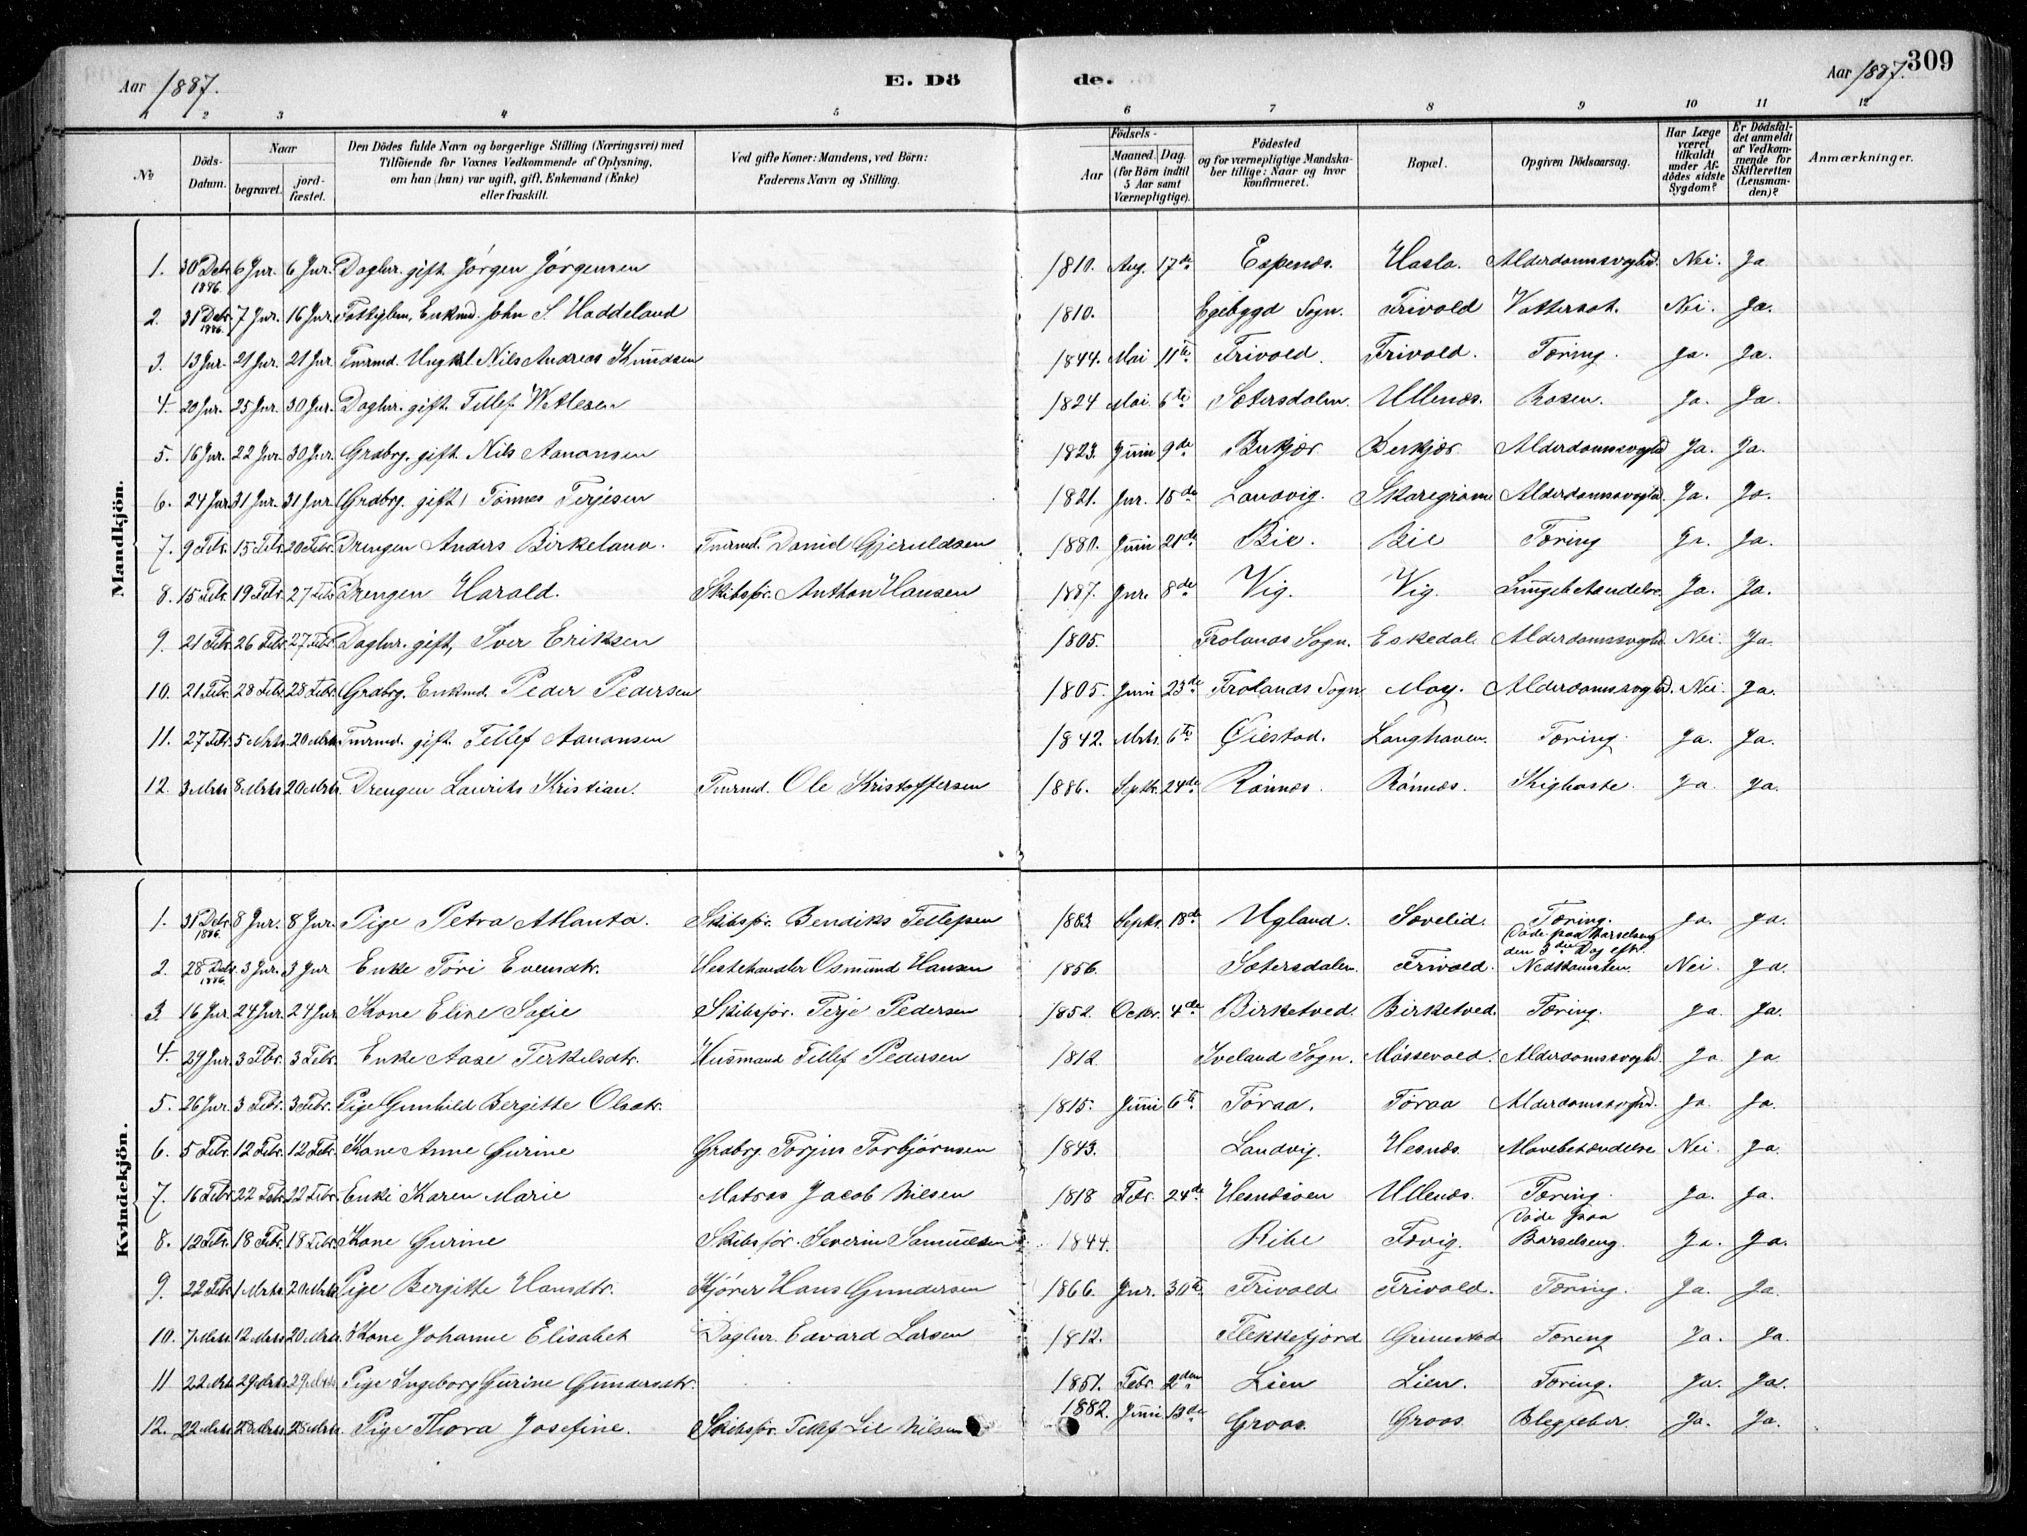 Aar 1887. E. Dö de. Aar 1887. 309
1 2 3 4 5 6 7 8 9 10 11 12
No Döds-Datum. Naar begravet. jord-fæstet. Den Dödes fulde Navn og borgerlige Stilling (Næringsvei) med Tilföiende for Voxnes Vedkommende af Oplysning, om han (hun) var ugift, gift, Enkemand (Enke) eller fraskilt. Ved gifte Koner: Mandens, ved Börn: Faderens Navn og Stilling. Födsels- Aar Maaned. Dag. (for Börn indtil 5 Aar samt Værnepligtige). Födested og for værnepligtige Mandskaber tillige: Naar og hvor konfirmeret. Bopæl. Opgiven Dödsaarsag. Har Læge været tilkaldt under Afdödes sidste Sygdom? Er Dödsfaldet anmeldt af Vedkommende for Skifteretten (Lensmanden)? Anmærkninger.
Mandkjön.
1. 30 Debr. 1886. 6 Jnr. 6 Jnr. Daglnr. gift Jörgen Jörgensen 1810. Aug. 17de Espenæs. Hasla. Alderdomssvaghd. Nei. Ja
2. 31 Debr. 1886. 7 Jnr. 16 Jnr. Fattiglem, Enkmd. John S. Haddeland 1810. Egebygd Sogn. Frivold Vattersot. Nei. Ja.
3. 13 Jnr. 21 Jnr. 21 Jnr. Tmrmd. Ungkrl Nils Andreas Knudsen 1844. Mai 11te Frivold. Frivold. Tæring. Ja. Ja.
4. 20 Jnr. 25 Jnr. 30 Jnr. Daglnr. gift Tellef Wetlesen 1824 Mai 6te Sætersdalen. Ullenæs. Rosen. Ja. Ja.
5. 16 Jnr. 22 Jnr. 30 Jnr. Grdbrg. gift Nils Aanonsen 1823. Juni 9de Berkjær Berkjær Alderdomssvaghd Ja. Ja.
6. 24 Jnr. 31 Jnr. 31 Jnr. Grdbrg. gift, Tönnes Terjesen 1821. Jnr. 15de Landvig. Skaregrøm Alderdomssvaghd. Ja. Ja.
7. 9 Febr. 15 Febr. 20 Febr. Drengen Anders Birkeland. Tmrmd. Daniel Gjeruldsen 1880. Juni 21de Bie. Bie Tæring Ja. Ja.
8. 15 Febr. 19 Febr. 27 Febr. Drengen Harald. Skibsför. Anthon Hansen 1887. Jnr. 8de Vig. Vig. Lungebetændelse. Ja. Ja.
9. 21 Febr. 26 Febr. 27 Febr. Daglnr. gift, Iver Eriksen 1805. Frolands Sogn. Eskedal. Alderdomssvaghd Nei. Ja.
10. 21 Febr. 28 Febr. 28 Febr. Grdbrg. Enkmd. Peder Pedersen 1805. Juni 23de Frolands Sogn Moy. Alderdomssvaghd. Nei. Ja.
11. 27 Febr. 5 Mrts 20 Mrts. Tmrmd. gift Tellef Aanonsen 1842. Mrts. 6te Øiestad. Langhaven. Tæring. Ja. Ja.
12. 3 Mrts 8 Mrts 20 Mrts. Drengen Laurits Kristian. Tmrmd. Ole Kristoffersen 1886. Septbr. 24de Rönnæs. Rönnæs. Kighoste. Ja. Ja.
Kvindekjön.
1. 31 Debr. 1886. 8 Jnr. 8 Jnr. Pige Petra Atlanta. Skibsför. Bendiks Tellefsen 1883 Septbr. 18de Ugland. Sævelid. Tæring. Ja. Ja.
2. 28 Debr. 1886. 3 Jnr. 3 Jnr Enke Töri Evensdtr. Hestehandler Osmund Hansen 1856. Sætersdalen. Frivold. Döde paa Barselseng den 3die Dag eftr. Nedkomsten. Nei. Ja.
3. 16 Jnr. 24 Jnr. 24 Jnr Kone Eline Sofie Skibsför. Terje Pedersen 1852. Octbr. 4de Birketved. Birketved. Tæring. Ja. Ja.
4. 29 Jnr. 3 Febr. 3 Febr. Enke Aase Terkilsdtr. Husmand Tellef Pedersen 1812 Iveland Sogn. Mössevold. Alderdomssvaghd. Ja. Ja
5. 26 Jnr. 3 Febr. 3 Febr. Pige Gunhild Bergitte Olsdtr. 1815. Juni 6te Töraa. Töraa Alderdomssvaghd. Ja. Ja.
6. 5 Febr. 12 Febr. 12 Febr. Kone Anne Gurine Grdbrg. Torjus Torbjörnsen 1843. Landvig. Hesnæs. Mavebetændelse Nei. Ja
7. 16 Febr. 22 Febr. 22 Febr. Enke Karen Marie Matros Jacob Nilsen 1818 Febr. 24de Hesnæsöen Ullenæs. Tæring. Ja. Ja.
8. 12 Febr. 18 Febr. 18 Febr. Kone Gurine Skibsför. Severin Samuelsen 1844. Ribe Fevig. Döde paa Barselseng. Ja. Ja.
9. 22 Febr. 1 Mrts. 20 Mrts Pige Bergitte Hansdtr. Kjörer Hans Gundersen 1866. Jnr. 30te Frivold Frivold. Tæring. Ja. Ja.
10. 7 Mrts. 12 Mrts. 20 Mrts. Kone Johanne Elisabet Daglnr. Edvard Larsen 1812. Flekkefjord Grimstad Tæring Ja. Ja.
11 22 Mrts 29 Mrts 29 Mrts Pige Ingeborg Gurine Gundersdtr. 1851. Febr. 2den Lien Lien. Tæring. Ja. Ja.
12. 22 Mrts. 28 Mrts 28 Mrts. Pige Thora Josefine. Skibsför. Tellef Nilsen 1882. Juni 13de Groos. Groos. Blegfeber. Ja. Ja.